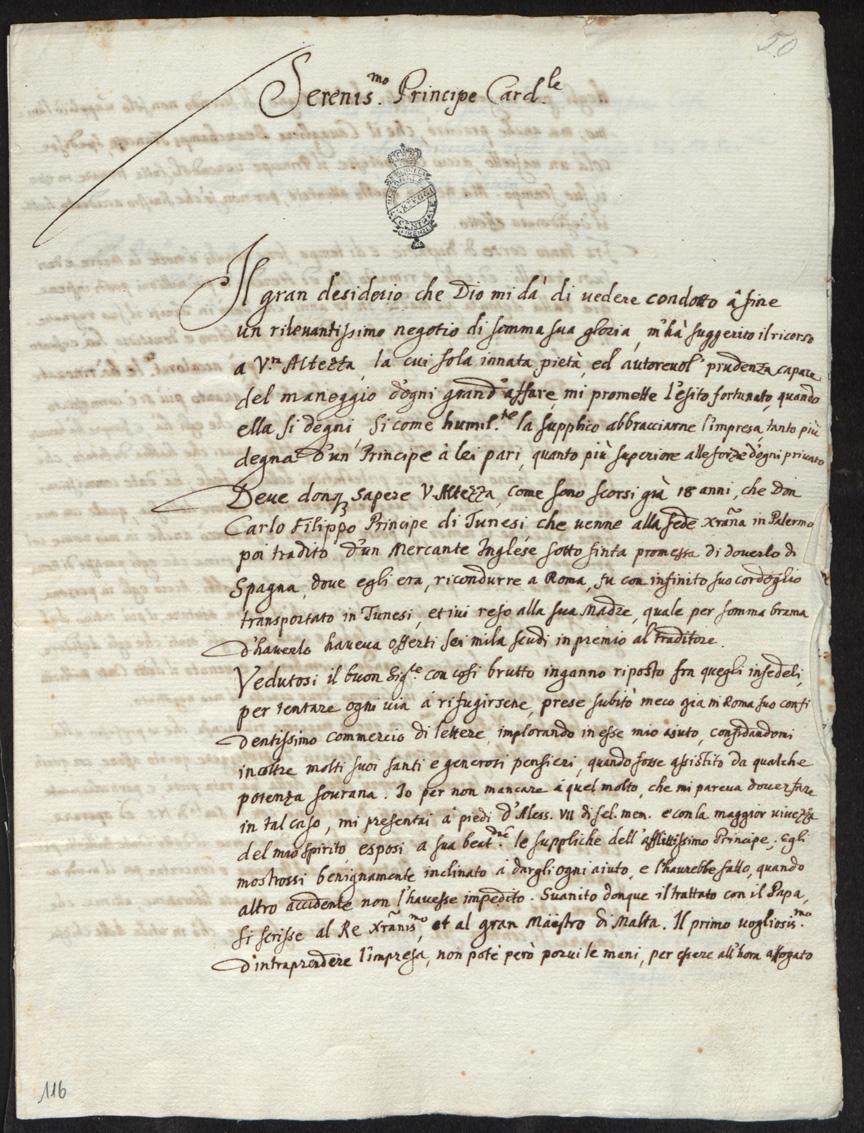 50
Serenis.mo Principe Card.le
Il gran desiderio che Dio mi dà di vedere condotto à fine
un rilevantissimo negotio di somma sua gloria, m'hà suggerito il ricorso
a V.ra Altezza, la cui sola innata pietà, ed autorevol' prudenza capace
del maneggio d'ogni grand'affare, mi promette l'esito fortunato, quando
ella si degni, si come humil.te la supplico abbracciarne l'impresa, tanto più
degna d'un Principe à lei pari, quanto più superiore alle forze d'ogni privato
Deve donq3 sapere V. Altezza, come sono scorsi già 18 anni, che Don
Carlo Filippo Principe di Tunesi che venne alla fede Xrãna in Palermo
poi tradito d'un Mercante Inglése sotto finta promessa di doverlo di
Spagna, dove egli era, ricondurre a Roma, fu con infinito suo cordoglio
transportato in Tunesi, et ivi reso alla sua Madre, quale per somma brama
d'haverlo haveva offerti sei mila scudi in premio al traditore.
Vedutosi il buon Sig.re con così brutto inganno riposto fra quegli infedeli,
per tentare ogni via à rifugirsene, prese subitò meco già in Roma suo confi
dentissimo commercio di lettere, implorando in esse mio aiuto, confidandomi
inoltre molti suoi santi e generosi pensieri, quando fosse assistito da qualche
potenza sourana. Io per non mancare à quel molto, che mi pareva dover fare
in tal caso, mi presentai à piedi d'Aless. VII di fel. mem. e con la maggior vivezza
del mio spirito esposi a sua beat.ne le suppliche dell'afflittissimo Principe, Egli
mostrossi benignamente inclinato à dargli ogni aiuto, e l'haurebbe fatto, quando
altro accidente non l'havesse impedito. Suanito donque il trattato con il Papa,
si scrisse al Re Xrãnis.mo, et al gran Maestro di Malta. Il primo vogliosis.mo
d'intraprendere l'impresa, non potè però porui le mani, per essere all'hora affogato
116